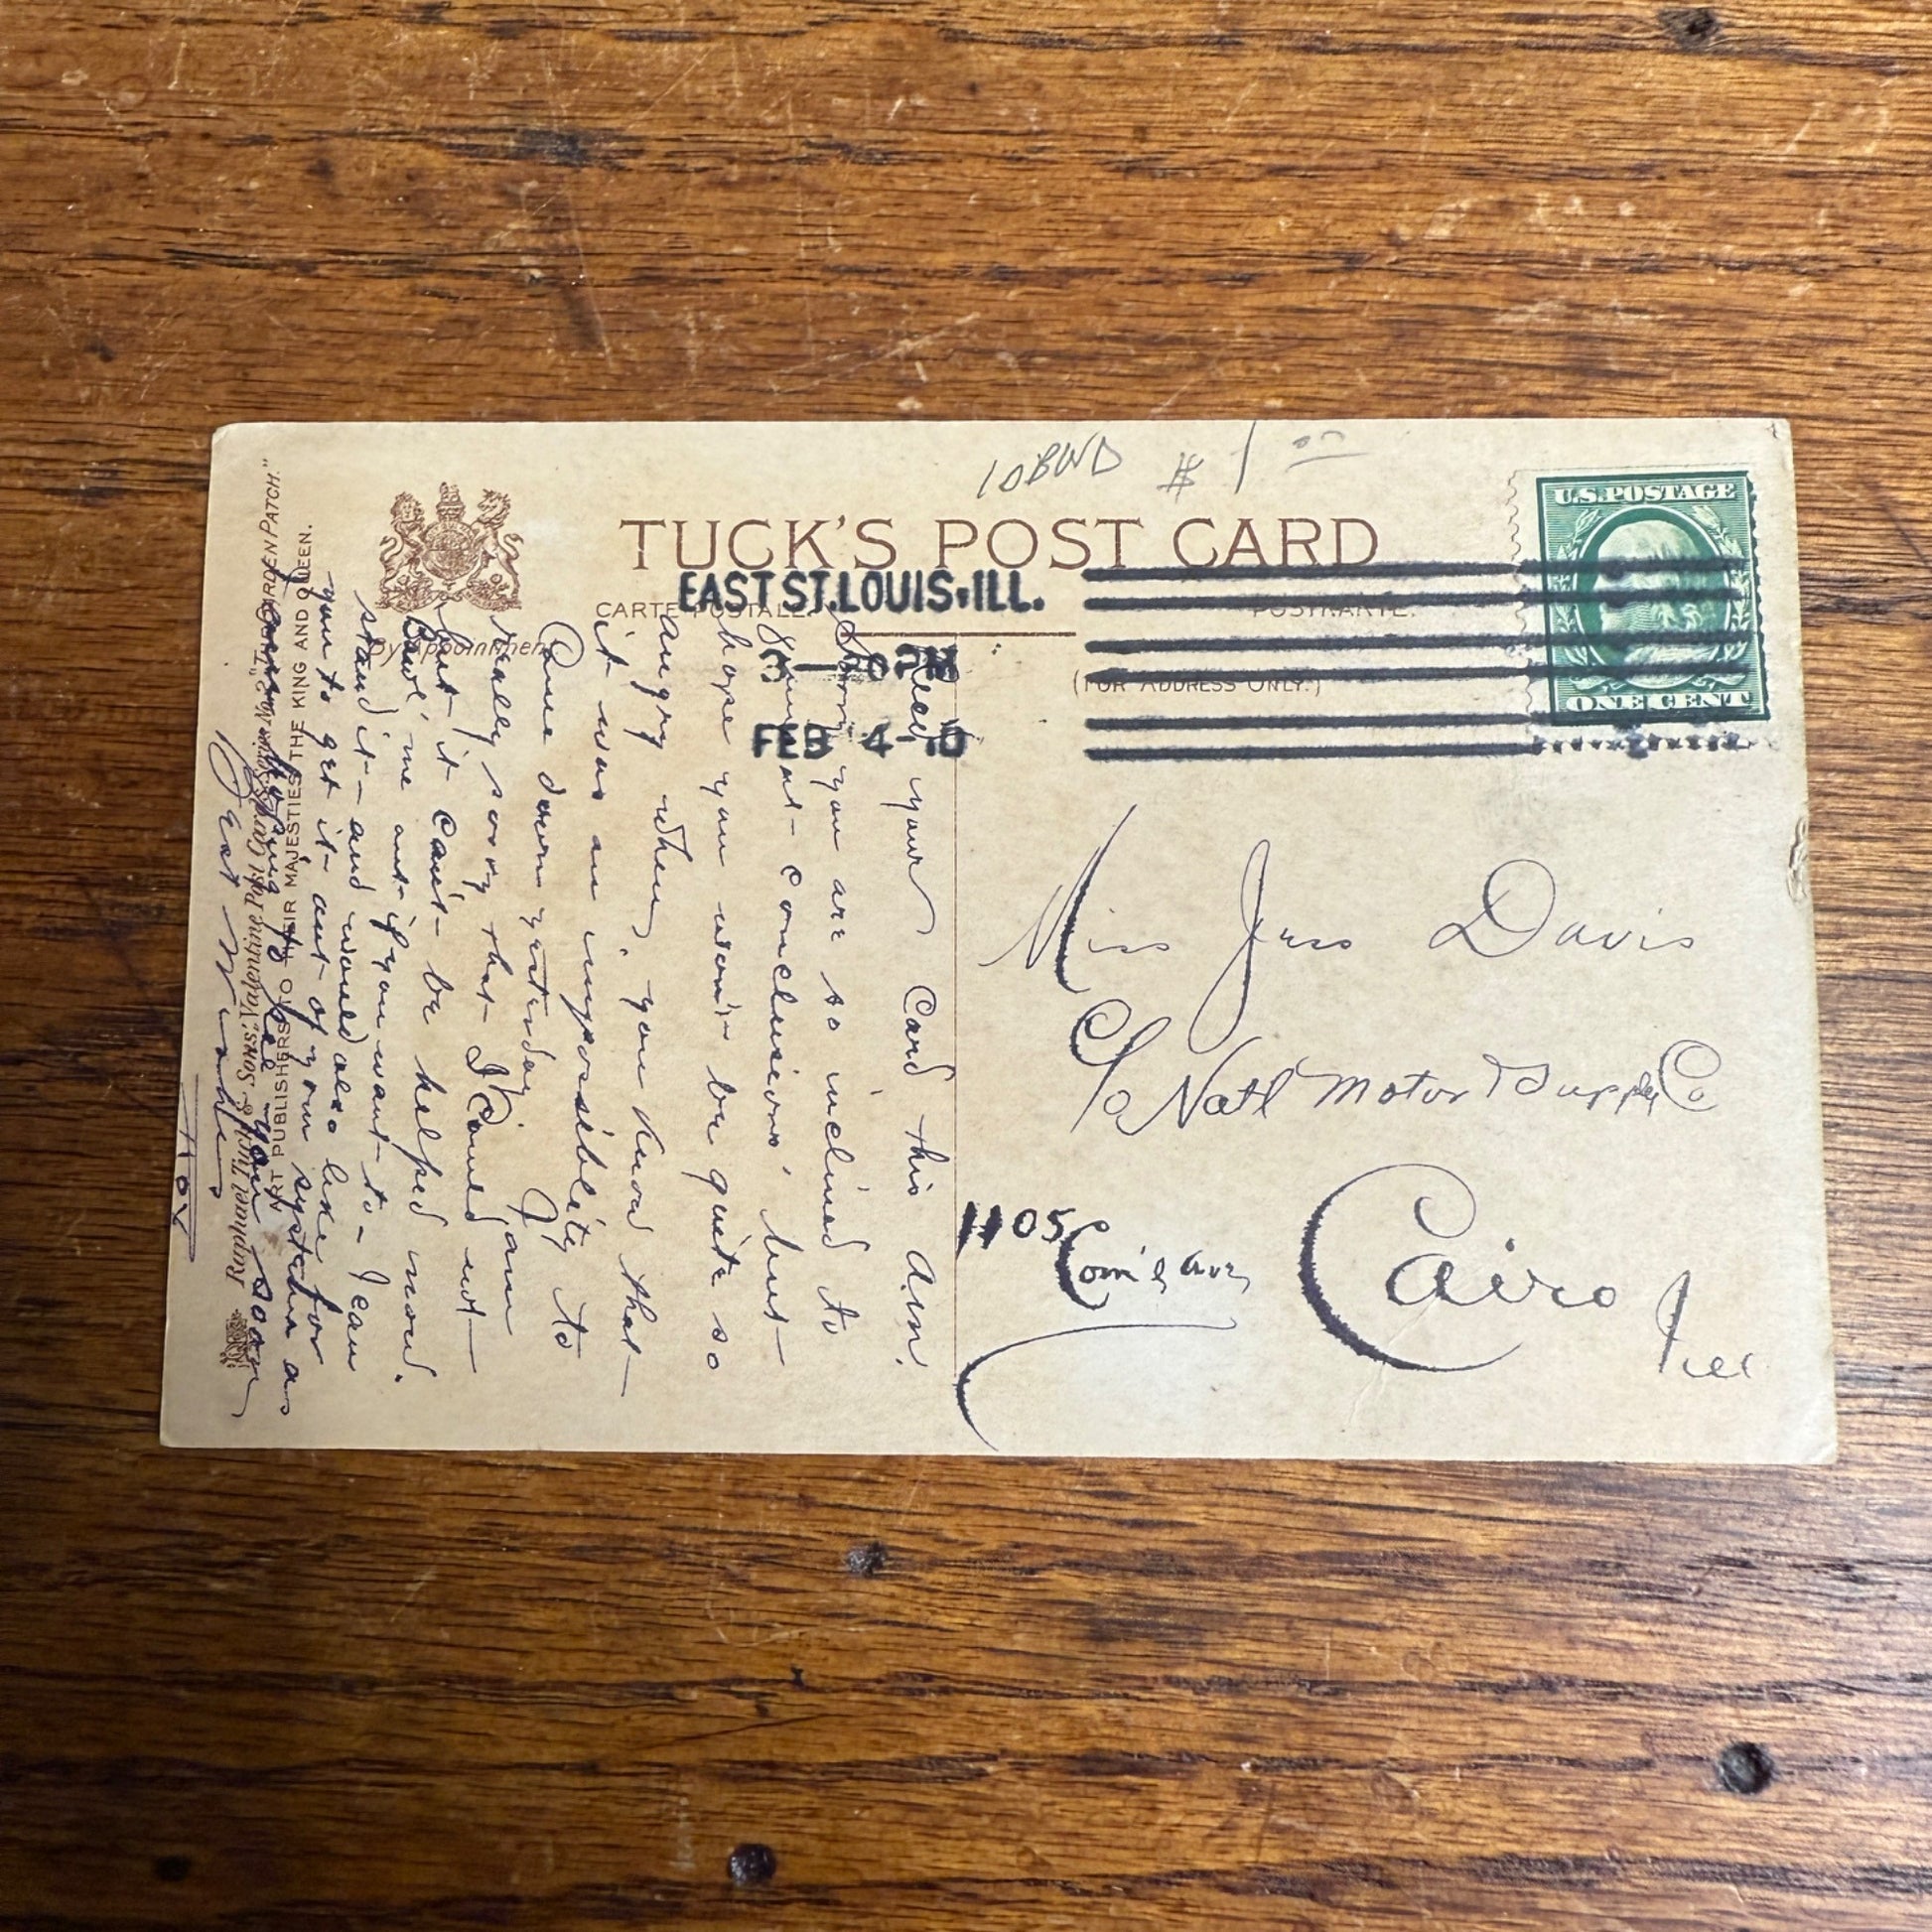 10BWD $1.00
TUCK'S POST CARD
CARTE POSTALE. POSTKARTE.
By Appointment
(FOR ADDRESS ONLY.)
EAST ST. LOUIS, ILL.
3 - PM
FEB 4 - 10
U.S. POSTAGE
ONE CENT
Miss Jess Davis
C/o Natl Motor Supply Co
1105 Com'l Ave,
Cairo Ill
Recd your Card this am.
Sorry you are so inclined to
jump at conclusions, but
hope you won't be quite so
angry when, you know that
it was an impossibility to
Come down yesterday. I am
really sorry that I Could not
but it can't be helped now.
Bawl, me out if you want to - I can
stand it - and would also like for
you to get it out of your system as
I am hoping to see you soon
Best Wishes
Roy
Raphael Tuck & Sons' Valentine Post Card Series No. 2 "THE GARDEN PATCH."
ART PUBLISHERS TO THEIR MAJESTIES THE KING AND QUEEN.